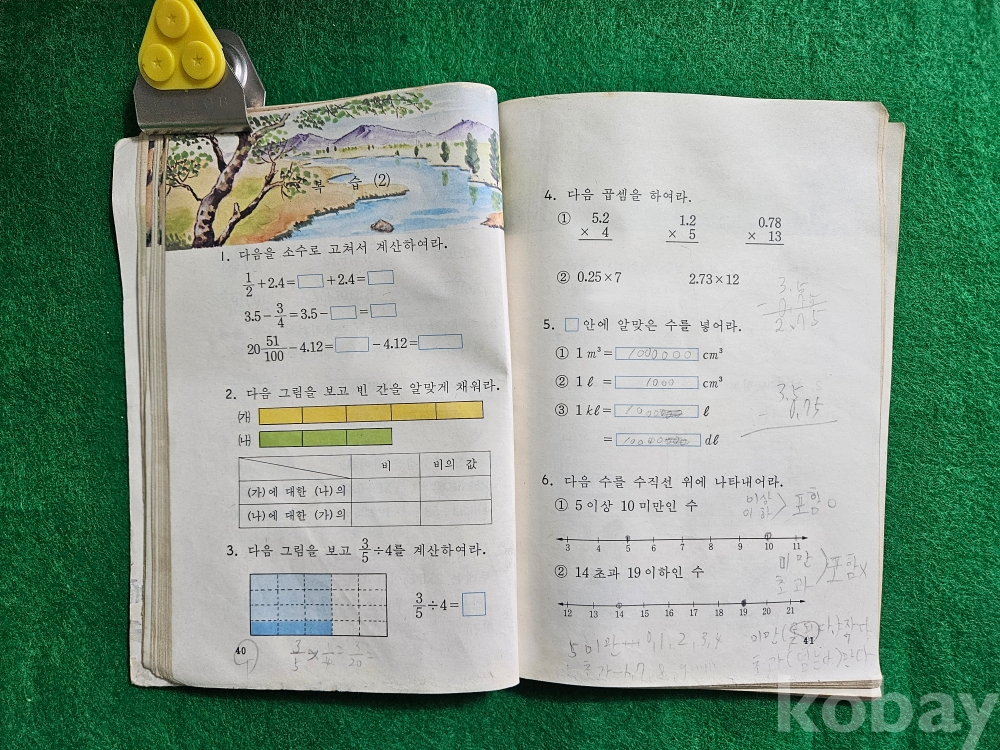 복 습 (2)
1. 다음을 소수로 고쳐서 계산하여라.
1/2 + 2.4 = □ + 2.4 = □
3.5 - 3/4 = 3.5 - □ = □
20 51/100 - 4.12 = □ - 4.12 = □
2. 다음 그림을 보고 빈 간을 알맞게 채워라.
(가)
(나)
비 비의 값
(가)에 대한 (나)의
(나)에 대한 (가)의
3. 다음 그림을 보고 3/5 ÷ 4를 계산하여라.
3/5 ÷ 4 = □
3/5 × 1/4 = 3/20 =
40
4. 다음 곱셈을 하여라.
① 5.2 × 4 1.2 × 5 0.78 × 13
② 0.25×7 2.73×12
3.5
- 0.75
2.75
5. □ 안에 알맞은 수를 넣어라.
① 1 m³ = 1000000 cm³
② 1 ℓ = 1000 cm³
③ 1 kℓ = 1000 ℓ
= 10000 dℓ
3.5
- 0.75
6. 다음 수를 수직선 위에 나타내어라.
① 5 이상 10 미만인 수
이상
이하 > 포함 ○
3 4 5 6 7 8 9 10 11
② 14 초과 19 이하인 수
미만
초과 > 포함 x
12 13 14 15 16 17 18 19 20 21
5 미만 0, 1, 2, 3, 4
초과
이만
초과
41
kobay